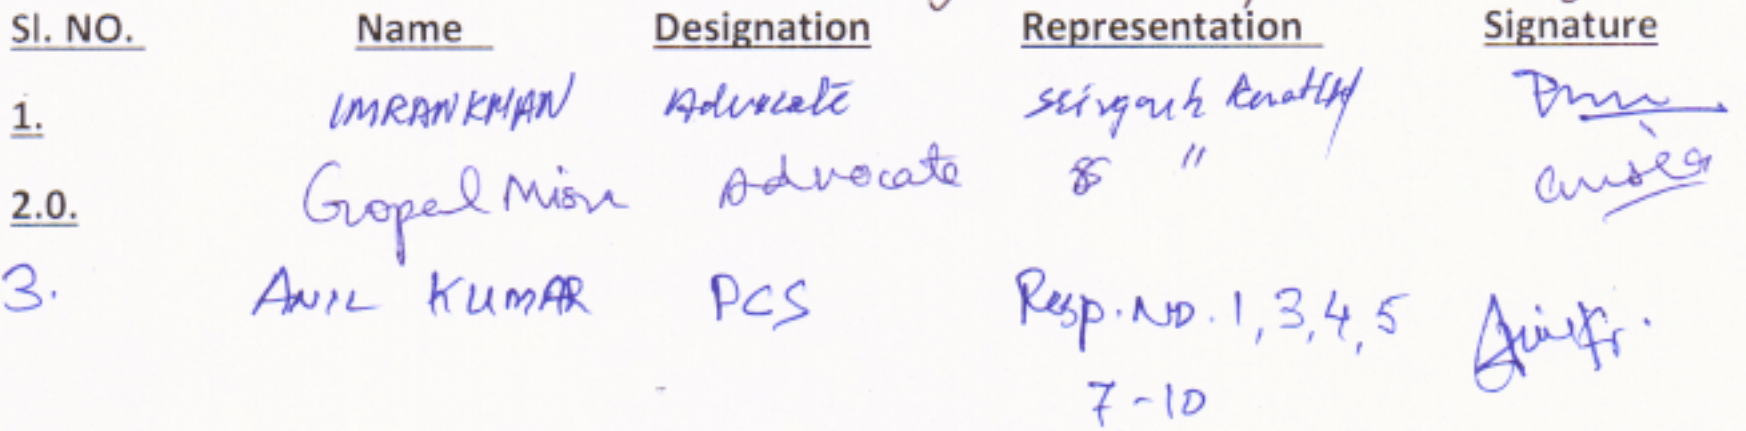 Sl. NO. Name Designation Representation Signature
1. IMRAN KHAN Advocate
2.0. Gopal Misra Advocate "
3. ANIL KUMAR PCS Resp. NO. 1, 3, 4, 5
7-10